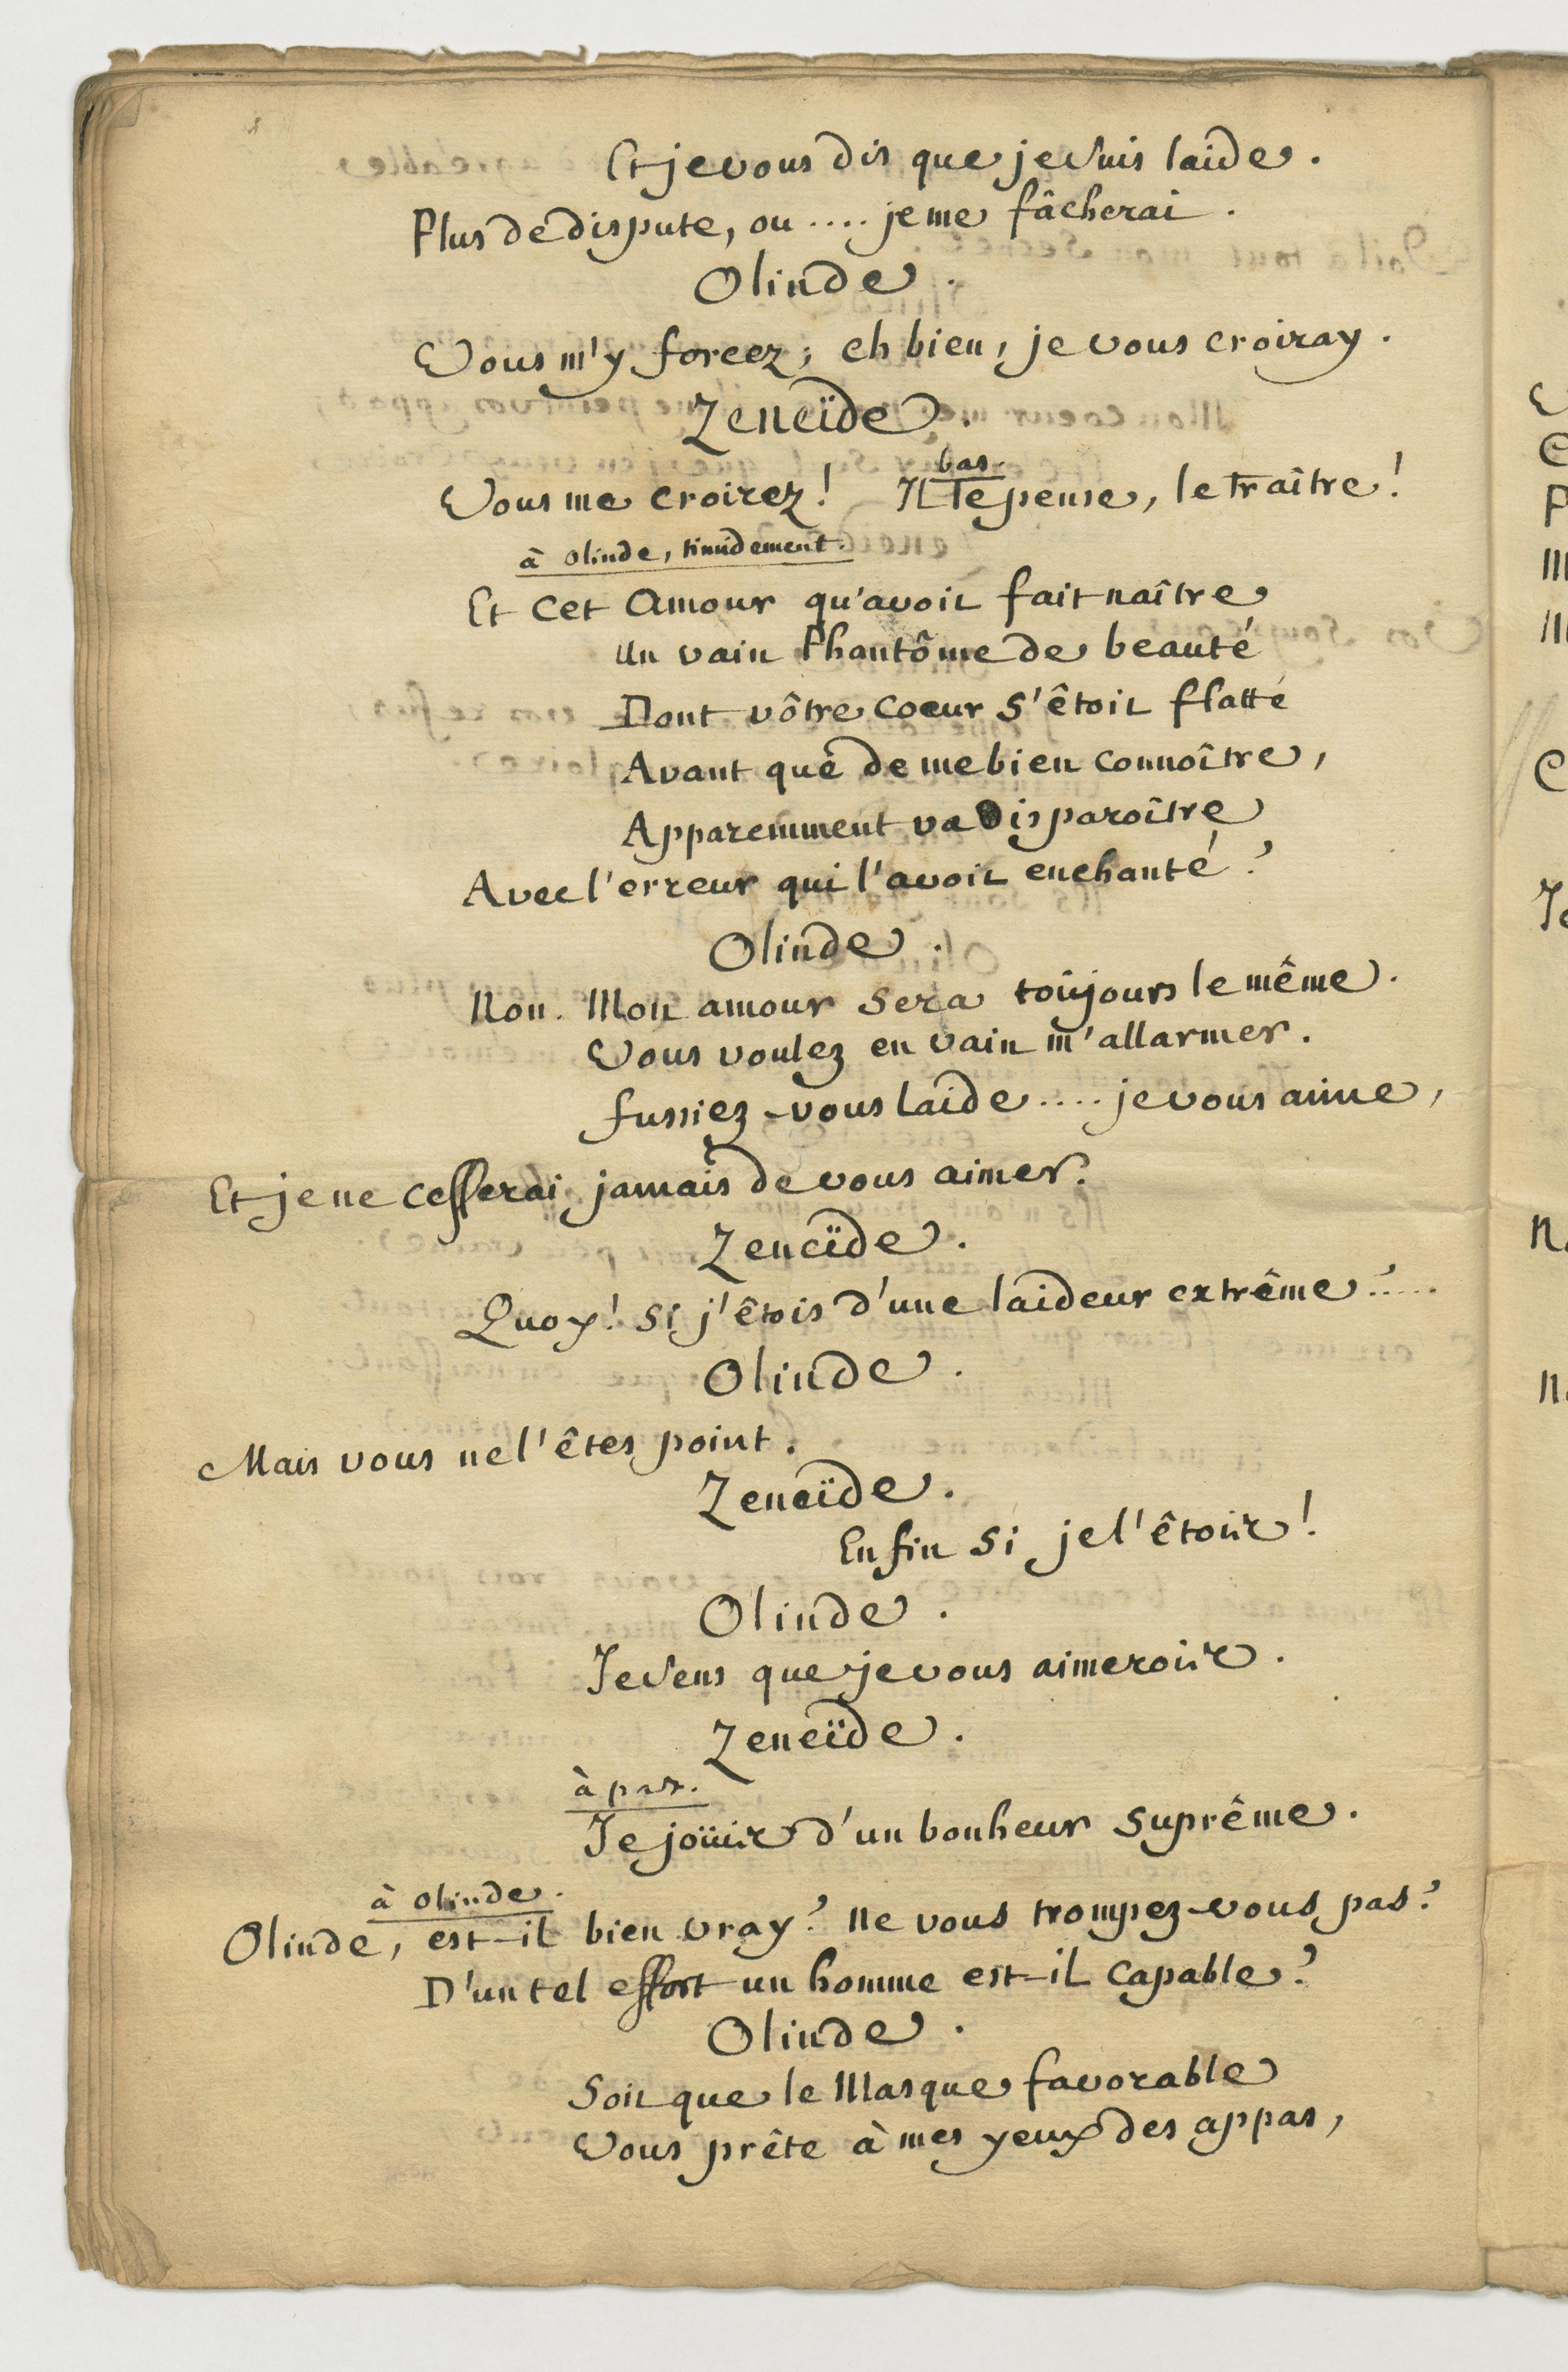 Et je vous dis que je suis laide.
Plus de dispute, ou .... je me fâcherai.
Olinde.
Vous m'y forcez; eh bien, je vous croiray.
Zeneïde.
bas.
Vous me croirez! Il le pense, le traître!
à olinde, timidement.
Et cet Amour qu'avoit fait naître
Un vain Phantôme de beauté
Dont vôtre coeur s'êtoit flatté
Avant que de me bien connoître,
Apparemment va disparoître
Avec l'erreur qui l'avoit enchanté?
Olinde.
Non. Mon amour sera toûjours le même.
Vous voulez en vain m'allarmer.
fussiez-vous laide .... je vous aime,
Et je ne cesserai jamais de vous aimer.
Zeneïde.
Quoy! si j'êtois d'une laideur extrême?....
Olinde.
Mais vous ne l'êtes point.
Zeneïde.
Enfin si je l'êtois!
Olinde.
Je sens que je vous aimerois.
Zeneïde.
à part.
Je joüis d'un bonheur suprême.
à olinde.
Olinde, est-il bien vray? Ne vous trompez-vous pas?
D'un tel effort un homme est-il capable?
Olinde.
Soit que le Masque favorable
Vous prête à mes yeux des appas,